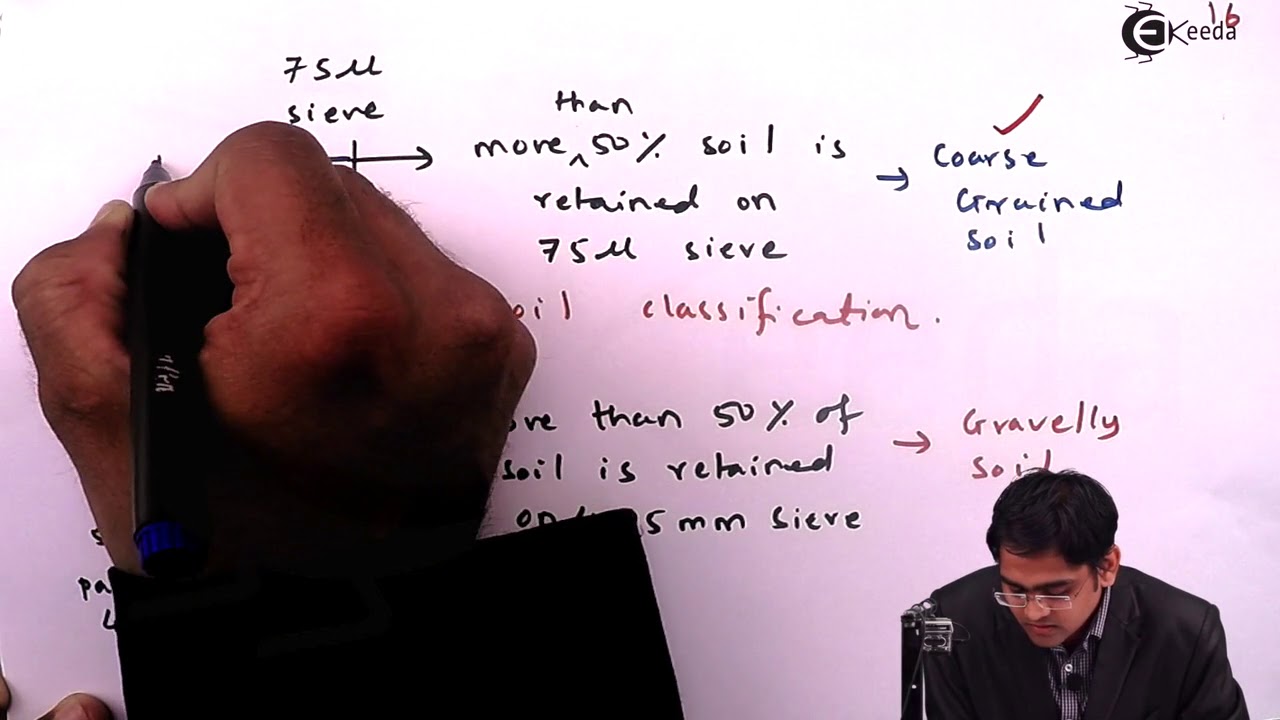 16
Keeda
75μ
sieve
than
more ^ 50% soil is
retained on
75μ sieve
→ Coarse
Grained
soil
soil classification.
more than 50% of
soil is retained
sieve
→ Gravelly
soil